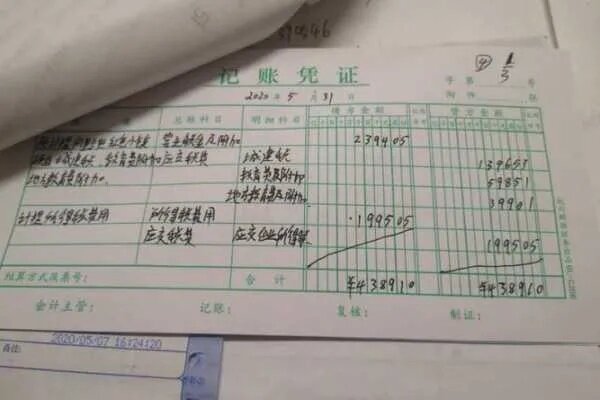 记账凭证
④ 1/3
字第 号
2020年5月31日
附件 张
总账科目 明细科目 借方金额 贷方金额
营业税金及附加 239405
教育费附加 应交税费 城建税 139651
地方教育费附加 教育费及附加 59851
地方教育费及附加 39901
计提所得税费用 所得税费用 199505
应交税费 应交企业所得税 199505
结算方式及票号: 合计 ¥438910 ¥438910
会计主管: 记账: 复核: 制证:
备注:
2020/05/07 16:24:20